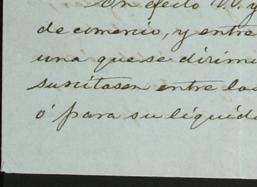 En efecto VV. y
de comercio, y entre
una que se dirimi
suscitasen entre los
ó para su liquida